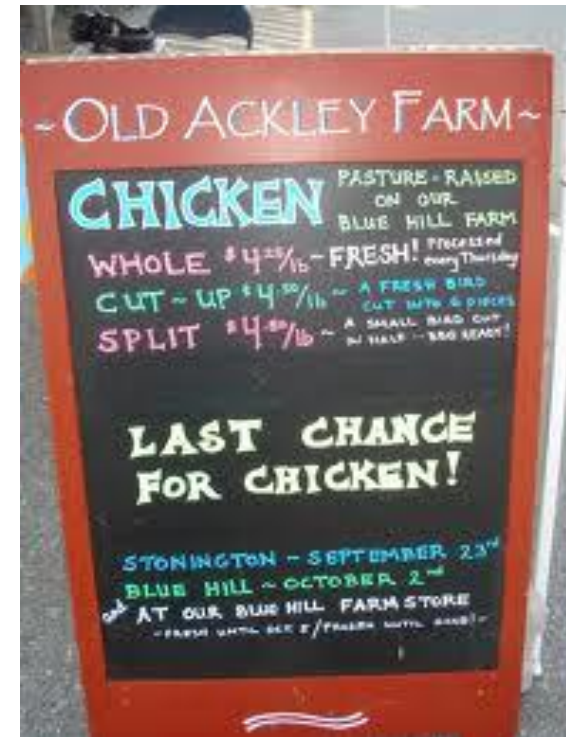 ~OLD ACKLEY FARM~
CHICKEN
PASTURE-RAISED
ON OUR
BLUE HILL FARM
WHOLE $4.25/lb ~ FRESH! Processed
every Thursday
CUT~UP $4.50/lb ~ A FRESH BIRD
CUT INTO 8 PIECES
SPLIT $4.50/lb ~ A SMALL BIRD CUT
IN HALF -- BBQ READY!
LAST CHANCE
FOR CHICKEN!
STONINGTON ~ SEPTEMBER 23rd
BLUE HILL ~ OCTOBER 2nd
and AT OUR BLUE HILL FARM STORE
~FRESH UNTIL OCT 5/FROZEN UNTIL GONE!~